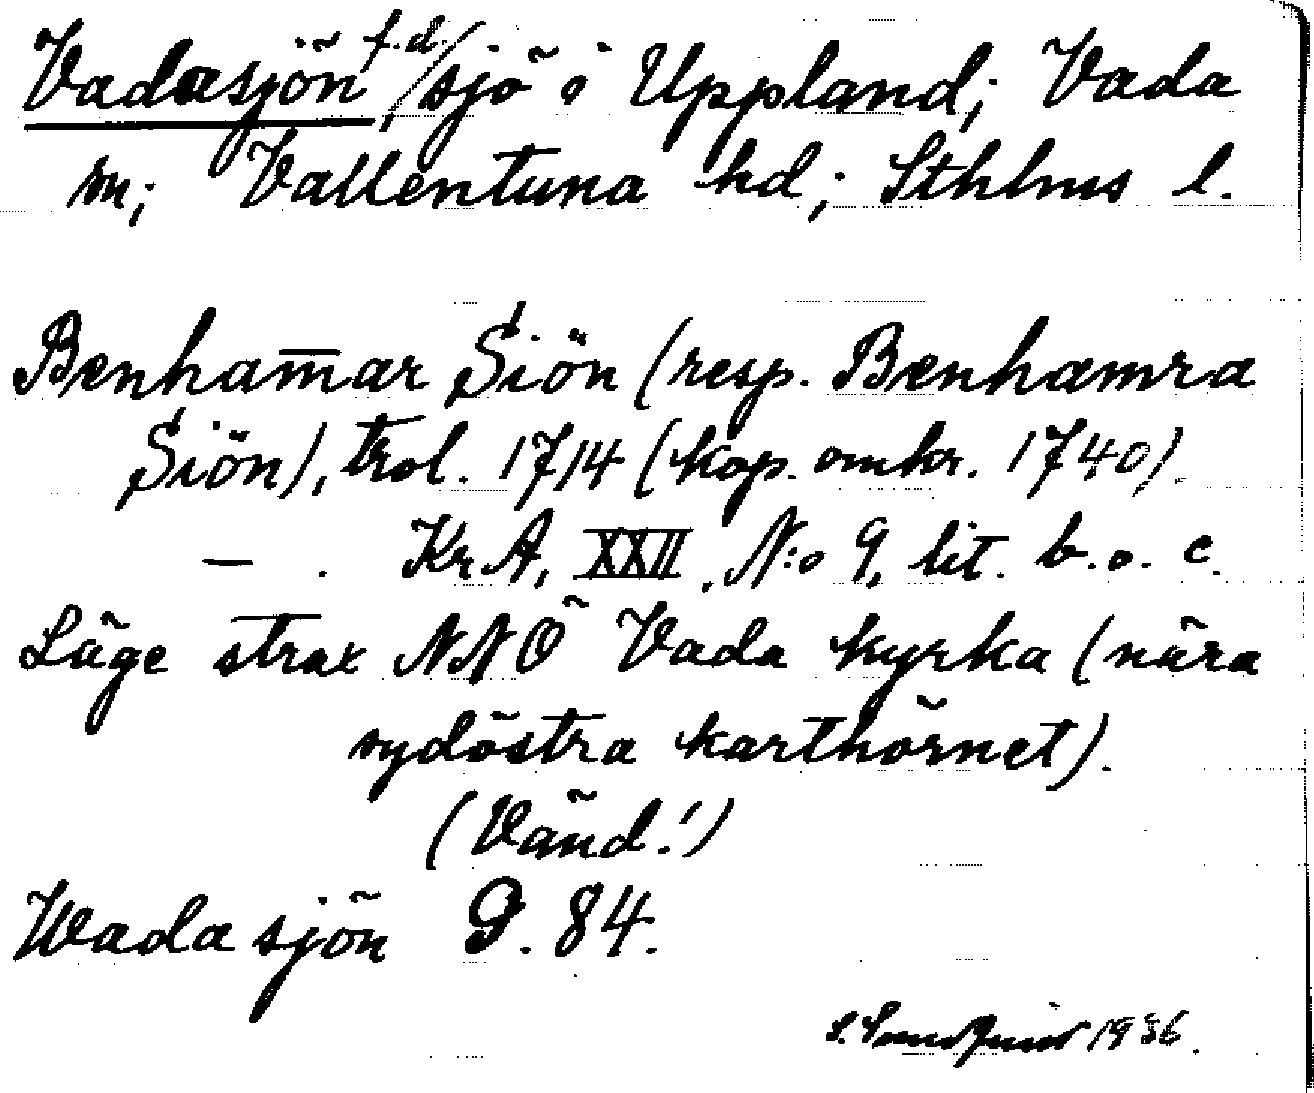 Vadasjön, f.d. sjö i Uppland; Vada
sn; Vallentuna hd; Sthlms l.
Benham̄ar Siön (resp. Benhamra
Siön), trol. 1714 (kop. omkr. 1740).
— . Kr.A, XXII, N:o 9, lit. b. o. c.
Läge strax NNÖ Vada kyrka (nära
sydöstra karthörnet).
(Vänd!)
Wada sjön G. 84.
1936.